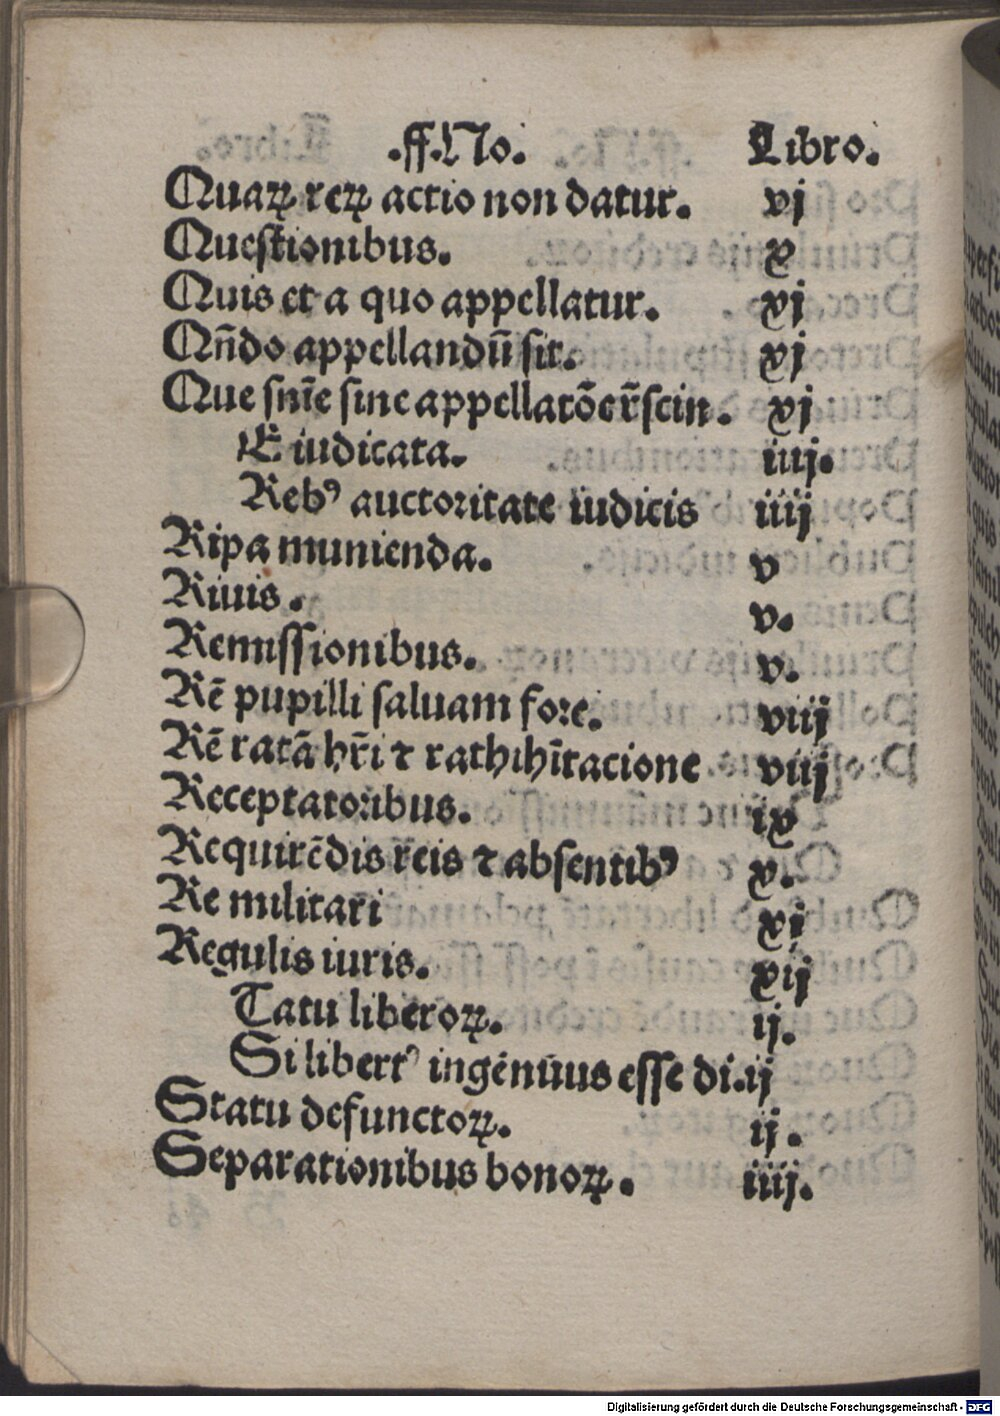 .ff.No. Libro.
Quaꝝ reꝝ actio non datur. vj
Questionibus. x
Quis et a quo appellatur. xj
Qn̄do appellandū sit. xj
Que snīe sine appellatōe r̄scin. xj
E iudicata. iij.
Rebꝰ auctoritate iudicis iiij
Ripa munienda. v
Riuis. v.
Remissionibus. v.
Rē pupilli saluam fore. viij
Rē ratā hr̄i ⁊ rathihītacione viij
Receptatoribus. ix
Requirēdis reis ⁊ absentibꝰ x.
Re militari xj
Regulis iuris. xij
Tatu liberoꝝ. ij.
Si libertꝰ ingēnuus esse di. ij
Statu defunctoꝝ. ij.
Separationibus bonoꝝ. iiij.
Digitalisierung gefördert durch die Deutsche Forschungsgemeinschaft - DFG